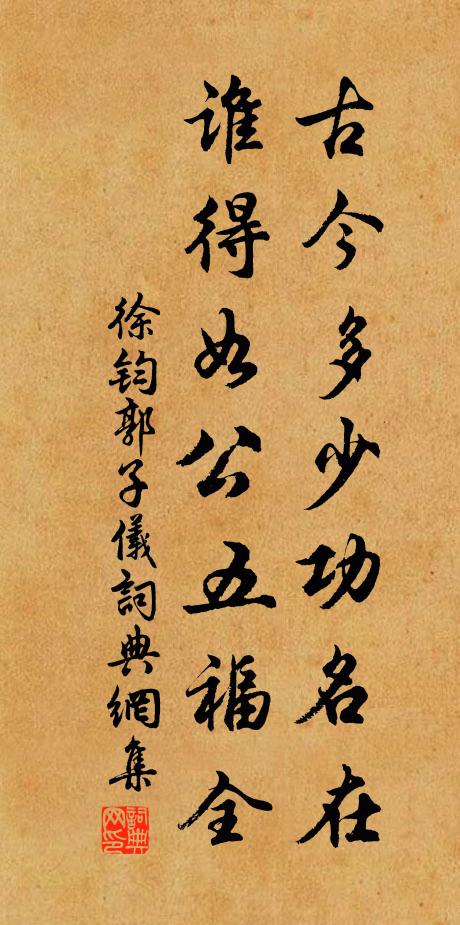 古今多少功名在
誰得如公五福全
徐鈞郭子儀詞典網集
詞典網印